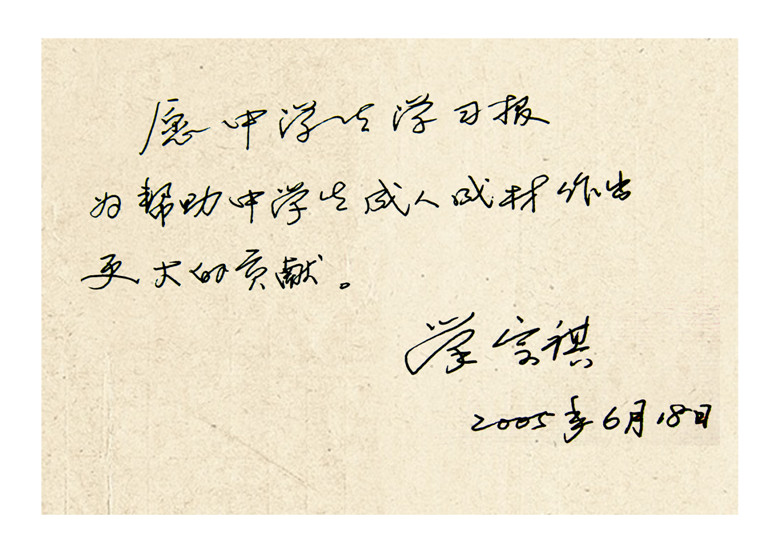 愿中学生学习报
为帮助中学生成人成材作出
更大的贡献。
宗祺
2005年6月18日